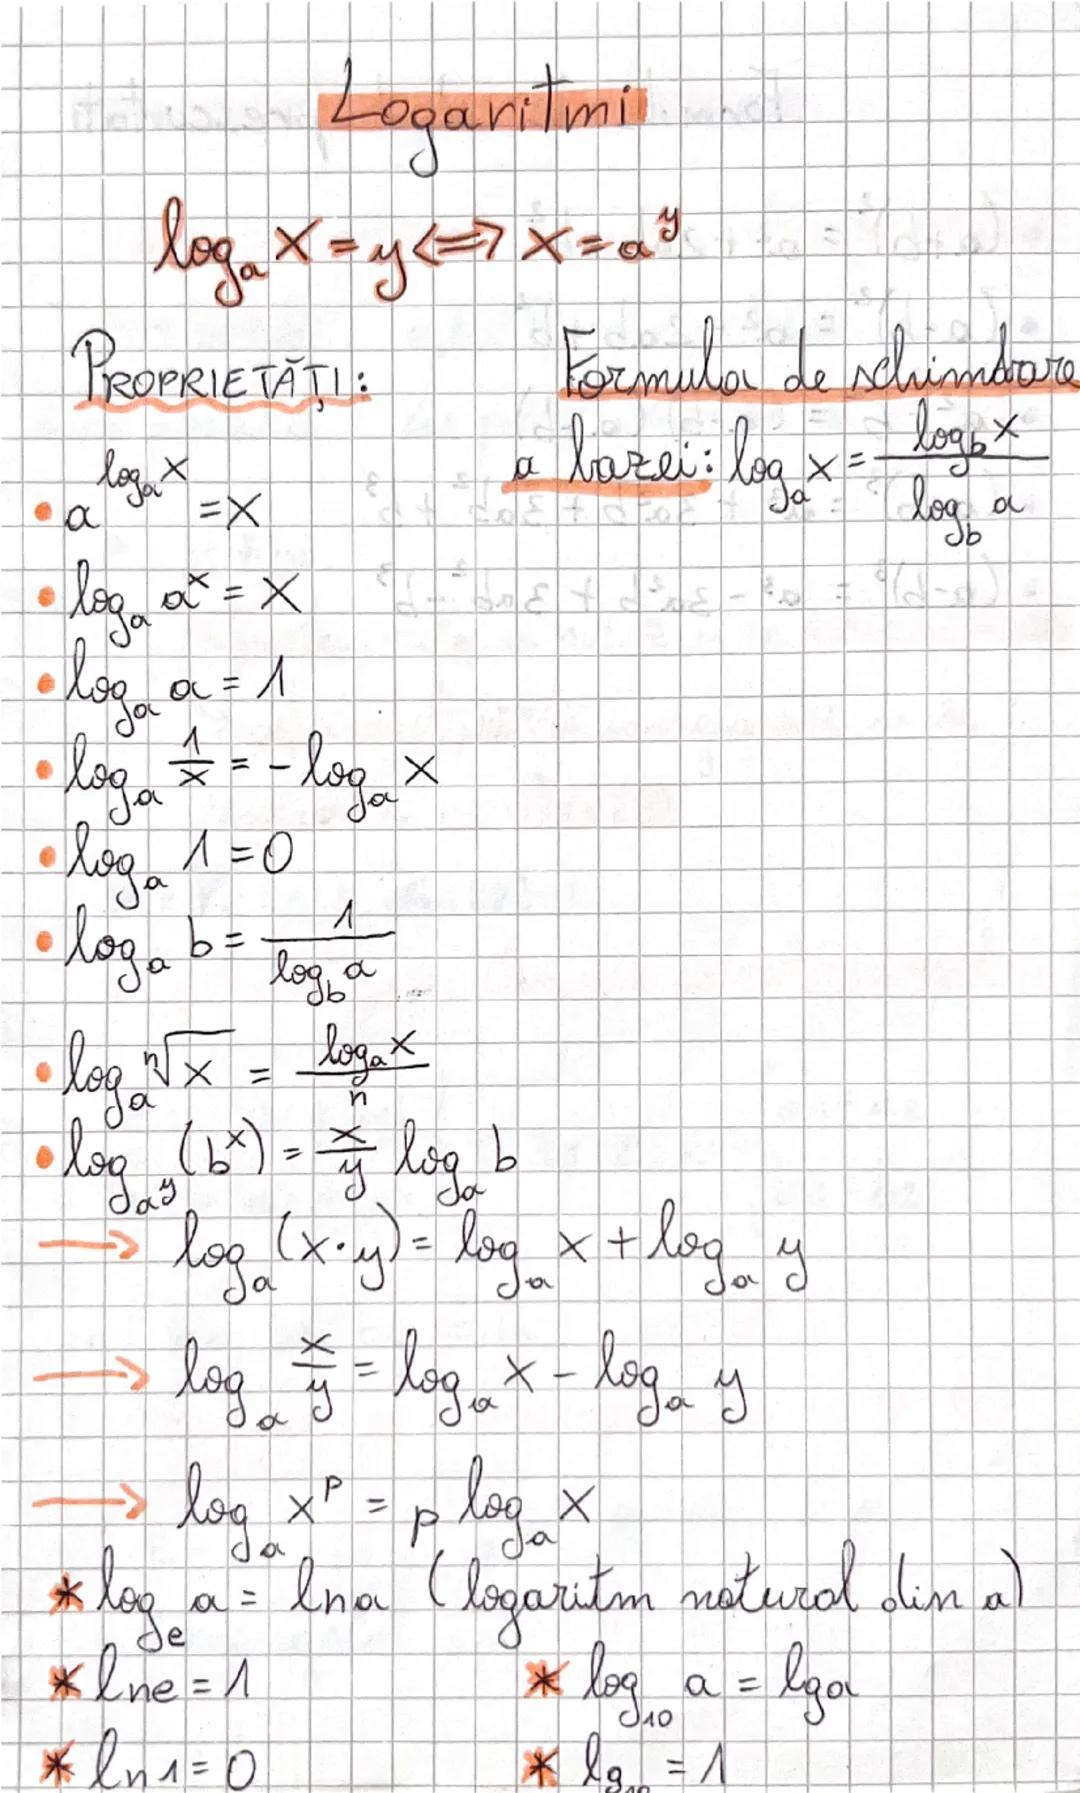 Logaritmi
logₐ x = y <=> x = a^y
PROPRIETĂȚI:
Formula de schimbare
a bazei: logₐ x = (log_b x)/(log_b a)
• a^(logₐ x) = x
• logₐ a^x = x
• logₐ a = 1
• logₐ 1/x = - logₐ x
• logₐ 1 = 0
• logₐ b = 1/(log_b a)
• logₐ ⁿ√x = (logₐ x)/n
• log_(a^y) (b^x) = x/y logₐ b
→ logₐ (x·y) = logₐ x + logₐ y
→ logₐ x/y = logₐ x - logₐ y
→ logₐ x^p = p logₐ x
* log_e a = ln a (logaritm natural din a)
* ln e = 1
* log₁₀ a = lg a
* ln 1 = 0
* lg₁₀ = 1